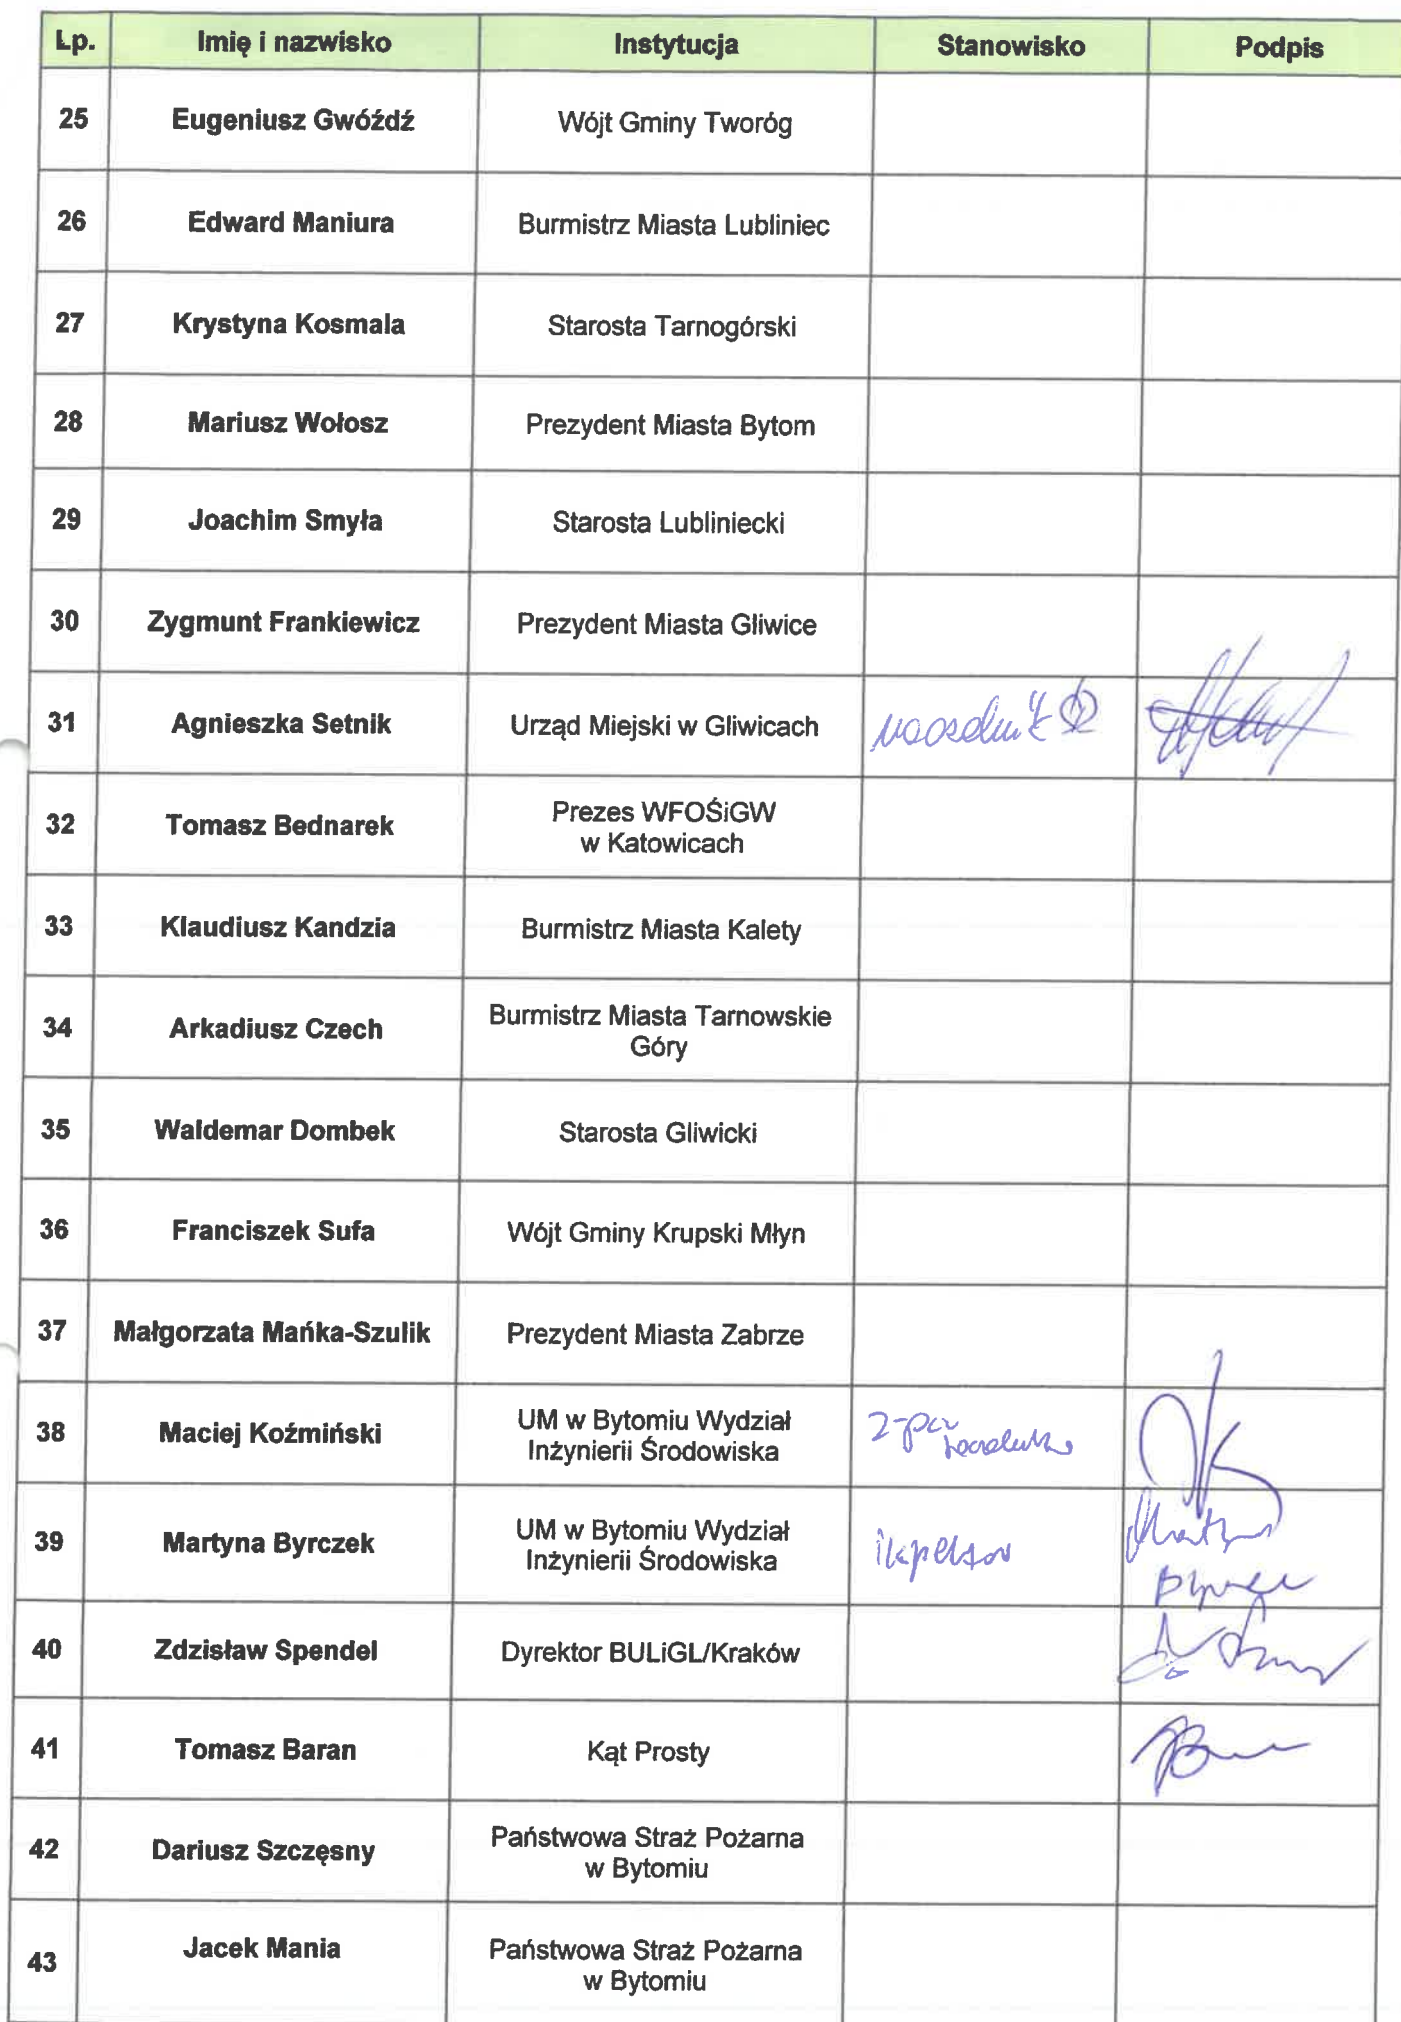 Lp. Imię i nazwisko Instytucja Stanowisko Podpis
25 Eugeniusz Gwóźdź Wójt Gminy Tworóg
26 Edward Maniura Burmistrz Miasta Lubliniec
27 Krystyna Kosmala Starosta Tarnogórski
28 Mariusz Wołosz Prezydent Miasta Bytom
29 Joachim Smyła Starosta Lubliniecki
30 Zygmunt Frankiewicz Prezydent Miasta Gliwice
31 Agnieszka Setnik Urząd Miejski w Gliwicach
32 Tomasz Bednarek Prezes WFOŚiGW
w Katowicach
33 Klaudiusz Kandzia Burmistrz Miasta Kalety
34 Arkadiusz Czech Burmistrz Miasta Tarnowskie
Góry
35 Waldemar Dombek Starosta Gliwicki
36 Franciszek Sufa Wójt Gminy Krupski Młyn
37 Małgorzata Mańka-Szulik Prezydent Miasta Zabrze
38 Maciej Koźmiński UM w Bytomiu Wydział
Inżynierii Środowiska
39 Martyna Byrczek UM w Bytomiu Wydział
Inżynierii Środowiska
40 Zdzisław Spendel Dyrektor BULiGL/Kraków
41 Tomasz Baran Kąt Prosty
42 Dariusz Szczęsny Państwowa Straż Pożarna
w Bytomiu
43 Jacek Mania Państwowa Straż Pożarna
w Bytomiu